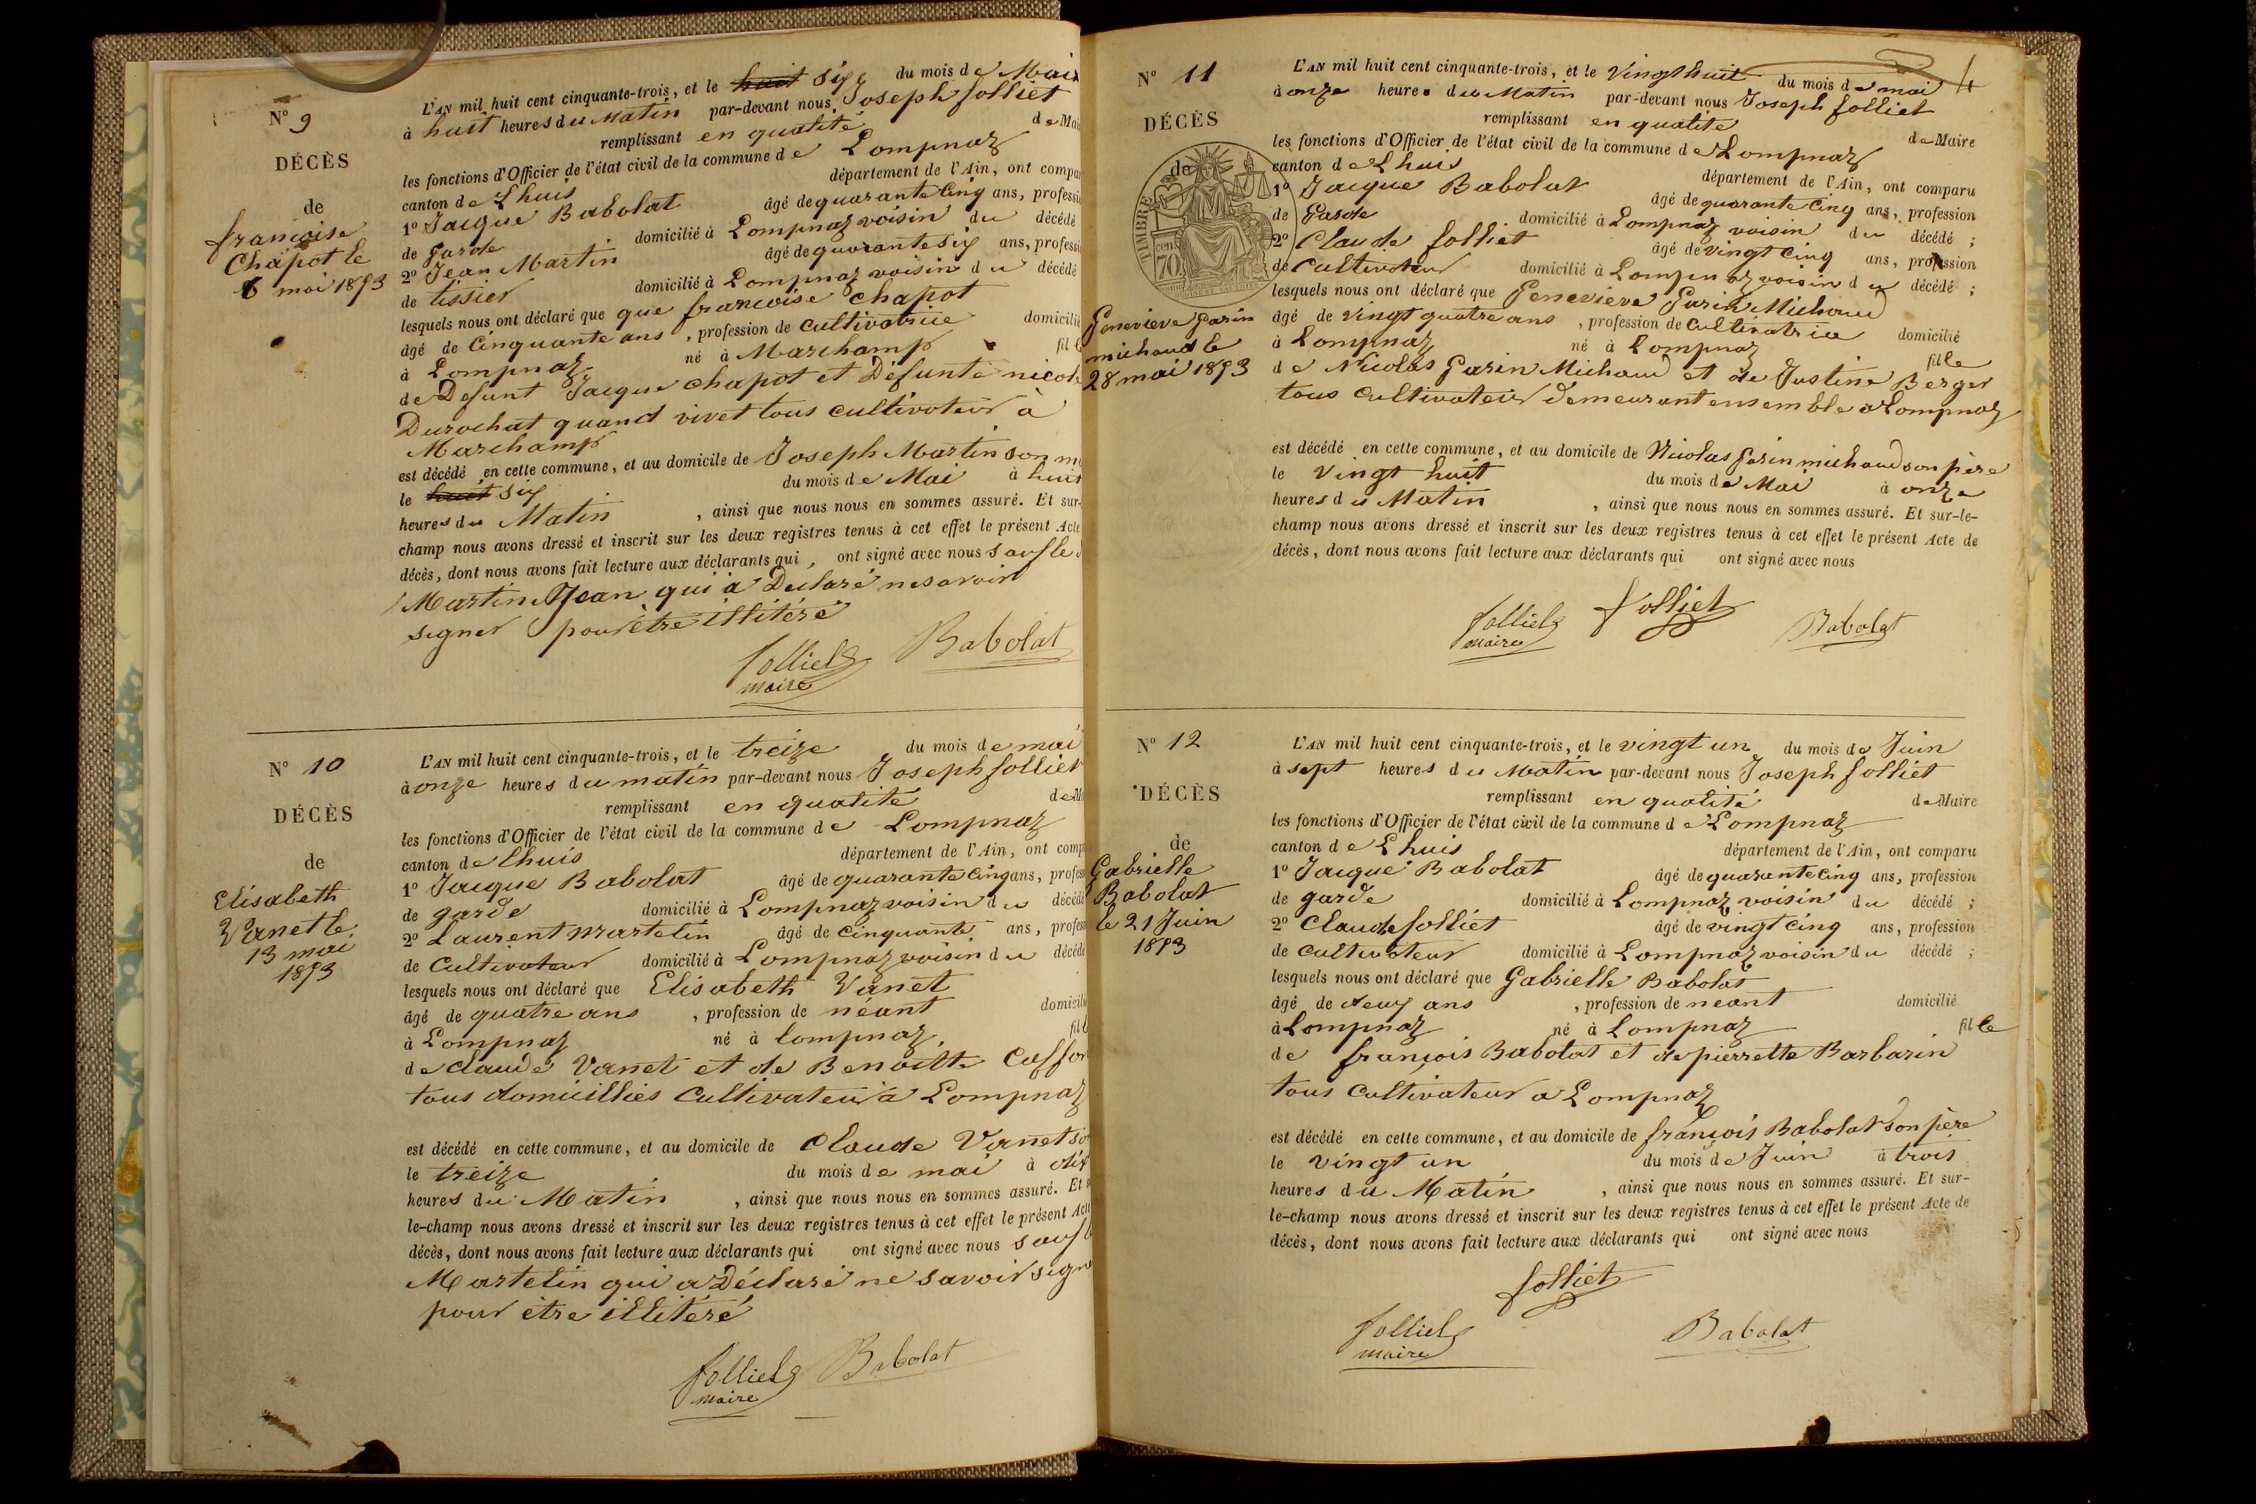 N° 9
DÉCÈS
de
françoise
Chapot le
6 mai 1853
L'AN mil huit cent cinquante-trois, et le huit six du mois de Mai
à huit heures du Matin par-devant nous Joseph folliet
remplissant en qualité de Mai
les fonctions d'Officier de l'état civil de la commune de Lompnaz
canton de Lhuis département de l'Ain, ont compa
1° Jacque Babolat âgé de quarante Cinq ans, professi
de Garde domicilié à Lompnaz voisin du décédé
2° Jean Martin âgé de quarante six ans, professi
de tissier domicilié à Lompnaz voisin du décédé
lesquels nous ont déclaré que que francoise Chapot
âgé de Cinquante ans, profession de Cultivatrice domicilié
à Lompnaz né à Marchamp fil
de Defunt Jacque Chapot et Defunte nicol
Durochat quand vivet tous cultivateur à
Marchamp
est décédé en cette commune, et au domicile de Joseph Martin son m
le huit six du mois de Mai à huit
heures du Matin, ainsi que nous nous en sommes assuré. Et sur-
champ nous avons dressé et inscrit sur les deux registres tenus à cet effet le présent Acte
décès, dont nous avons fait lecture aux déclarants qui, ont signé avec nous sauf le
Martin Jean qui à Declaré ne savoir
signer pour être illitéré
folliet Babolat
maire
N° 10
DÉCÈS
de
Elisabeth
Vanet le
13 mai
1853
L'AN mil huit cent cinquante-trois, et le treize du mois de mai
à onze heures du matin par-devant nous Joseph folliet
remplissant en qualité de M
les fonctions d'Officier de l'état civil de la commune de Lompnaz
canton de Lhuis département de l'Ain, ont comp
1° Jacque Babolat âgé de quarante Cinq ans, profess
de garde domicilié à Lompnaz voisin du décédé
2° Laurent Martelin âgé de Cinquante ans, profess
de Cultivateur domicilié à Lompnaz voisin du décédé
lesquels nous ont déclaré que Elisabeth Vanet
âgé de quatre ans, profession de néant domicilié
à Lompnaz né à Lompnaz fil
de Claude Vanet et de Benoitte
tous domicilliés Cultivateur à Lompnaz
est décédé en cette commune, et au domicile de Claude Vanet
le treize du mois de mai à dix
heures du Matin, ainsi que nous nous en sommes assuré. Et
le-champ nous avons dressé et inscrit sur les deux registres tenus à cet effet le présent Acte
décès, dont nous avons fait lecture aux déclarants qui ont signé avec nous sauf
Martelin qui a Déclaré ne savoir sign
pour être illitéré
folliet Babolat
maire
4
N° 11
DÉCÈS
de
TIMBRE
cen
70
Genevieve Garin
michaud le
28 mai 1853
L'AN mil huit cent cinquante-trois, et le Vingt huit du mois de mai
à onze heures du Matin par-devant nous Joseph folliet
remplissant en qualité de Maire
les fonctions d'Officier de l'état civil de la commune de Lompnaz
canton de Lhuis département de l'Ain, ont comparu
1° Jacque Babolat âgé de quarante Cinq ans, profession
de Garde domicilié à Lompnaz voisin du décédé ;
2° Claude folliet âgé de vingt Cinq ans, profession
de Cultivateur domicilié à Lompnaz voisin du décédé ;
lesquels nous ont déclaré que Genevieve Garin Michaud
âgé de vingt quatre ans, profession de Cultivatrice domicilié
à Lompnaz né à Lompnaz fille
de Nicolas Garin Michaud et de Justine Berger
tous Cultivateur demeurant ensemble a Lompnaz
est décédé en cette commune, et au domicile de Nicolas Garin michaud son père
le Vingt huit du mois de Mai à onze
heures du Matin, ainsi que nous nous en sommes assuré. Et sur-le-
champ nous avons dressé et inscrit sur les deux registres tenus à cet effet le présent Acte de
décès, dont nous avons fait lecture aux déclarants qui ont signé avec nous
folliet folliet Babolat
maire
N° 12
DÉCÈS
de
Gabrielle
Babolat
le 21 Juin
1853
L'AN mil huit cent cinquante-trois, et le vingt un du mois de Juin
à sept heures du Matin par-devant nous Joseph folliet
remplissant en qualité de Maire
les fonctions d'Officier de l'état civil de la commune de Lompnaz
canton de Lhuis département de l'Ain, ont comparu
1° Jacque Babolat âgé de quarante Cinq ans, profession
de garde domicilié à Lompnaz voisin du décédé ;
2° Claude folliet âgé de vingt Cinq ans, profession
de Cultivateur domicilié à Lompnaz voisin du décédé ;
lesquels nous ont déclaré que Gabrielle Babolat
âgé de deux ans, profession de neant domicilié
à Lompnaz né à Lompnaz fille
de françois Babolat et de pierrette Barbarin
tous Cultivateur a Lompnaz
est décédé en cette commune, et au domicile de françois Babolat son père
le vingt un du mois de Juin à trois
heures du Matin, ainsi que nous nous en sommes assuré. Et sur-
le-champ nous avons dressé et inscrit sur les deux registres tenus à cet effet le présent Acte de
décès, dont nous avons fait lecture aux déclarants qui ont signé avec nous
folliet
folliet Babolat
maire